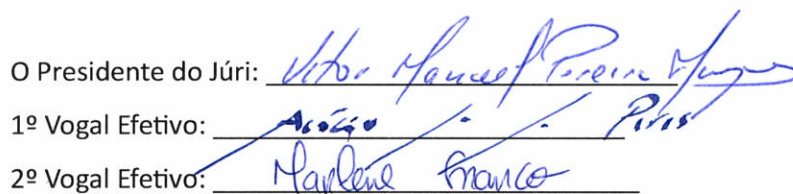 O Presidente do Júri: Vitor Manuel Pereira
1º Vogal Efetivo: Acácio Pires
2º Vogal Efetivo: Marlene Franco